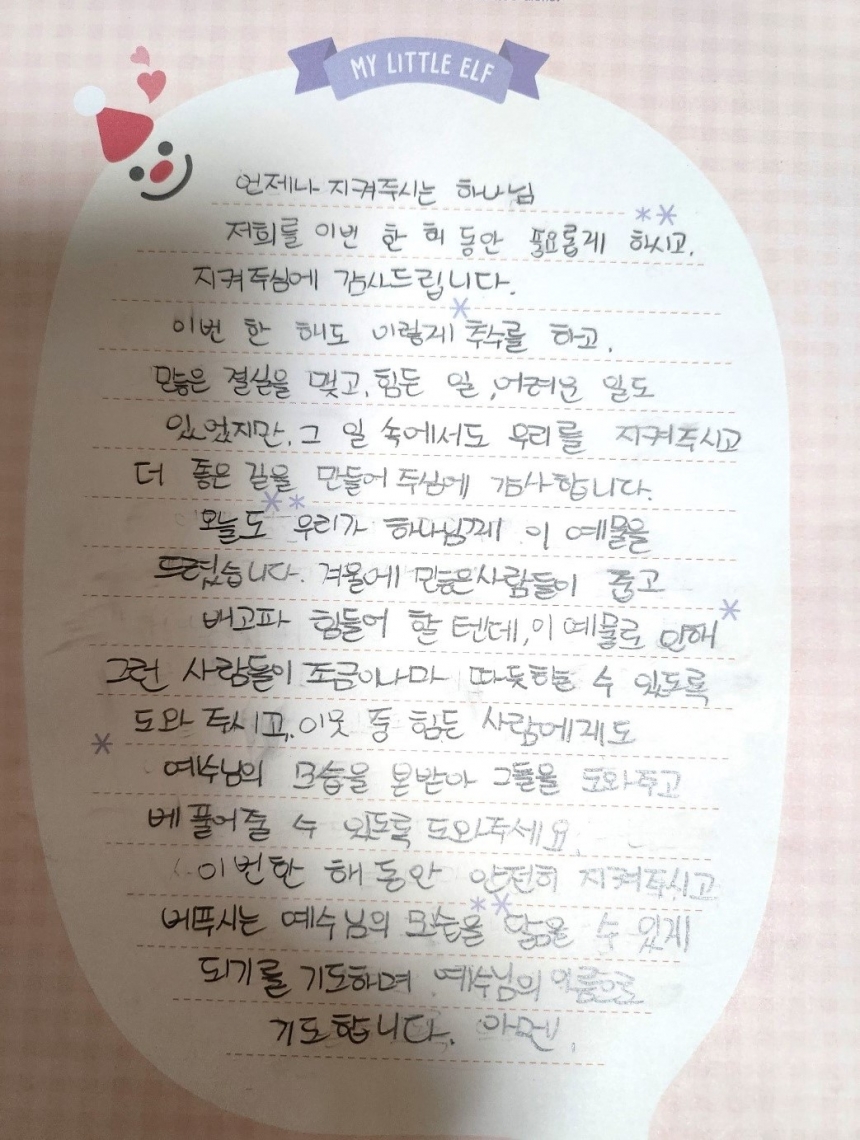 MY LITTLE ELF
언제나 지켜주시는 하나님
저희를 이번 한 해 동안 풍요롭게 하시고,
지켜주심에 감사드립니다.
이번 한 해도 이렇게 추수를 하고,
많은 결실을 맺고, 힘든 일, 어려운 일도
있었지만, 그 일 속에서도 우리를 지켜주시고
더 좋은 길을 만들어 주심에 감사합니다.
오늘도 우리가 하나님께 이 예물을
드렸습니다. 겨울에 많은 사람들이 춥고
배고파 힘들어 할 텐데, 이 예물로 인해
그런 사람들이 조금이나마 따듯해질 수 있도록
도와 주시고, 이웃 중 힘든 사람에게도
예수님의 모습을 본받아 그들을 도와주고
베풀어줄 수 있도록 도와주세요.
이번한 해 동안 안전히 지켜주시고
베푸시는 예수님의 모습을 닮을 수 있게
되기를 기도하며 예수님의 이름으로
기도합니다. 아멘.